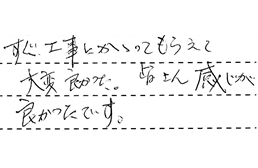 すぐ工事にかかってもらえて
大変良かった。皆さん感じが
良かったです。